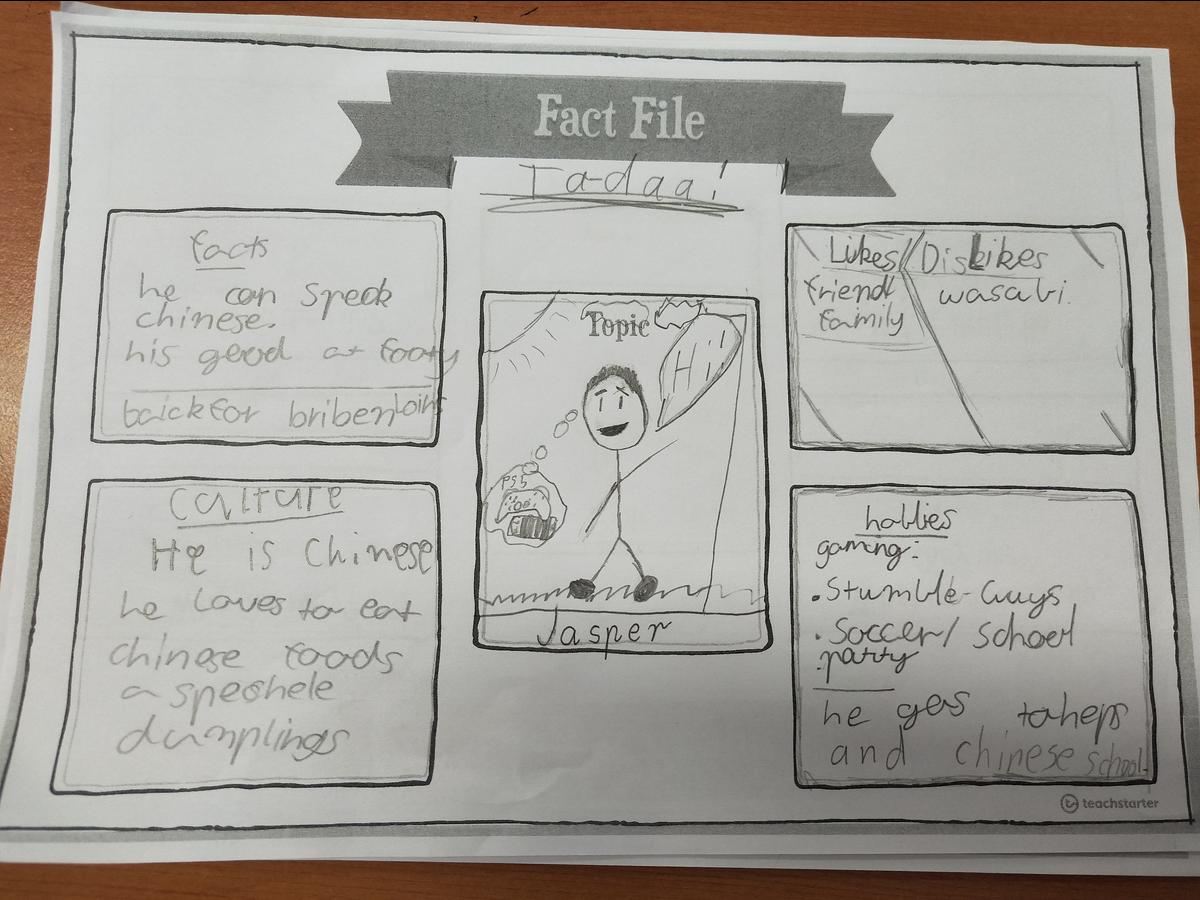 Fact File
Ta-daa!
facts
he can speak
chinese.
his good at footy
Culture
He is Chinese
he loves to eat
chinese foods
a speshele
dumplings
Topic
Hi!
PS5
Jasper
Likes // Dislikes
friend wasabi.
family
hobbies
gaming:
• Stumble-Guys
• Soccer / School
party
he goes
and chinese school.
teachstarter